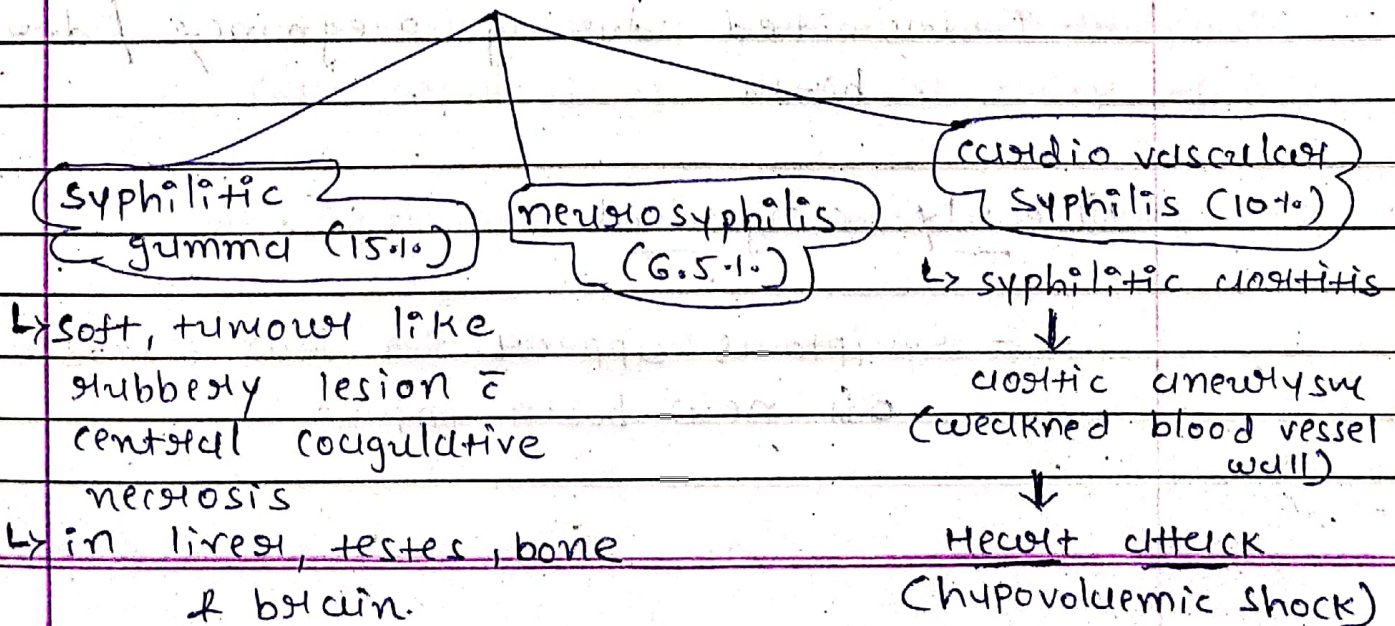 syphilitic
gumma (15%)
↳ soft, tumour like
rubbery lesion c̄
central coagulative
necrosis
↳ in liver, testes, bone
& brain.
neurosyphilis
(6.5%)
cardio vascular
syphilis (10%)
↳ syphilitic aortitis
↓
aortic aneurysm
(weakned blood vessel
wall)
↓
Heart attack
(hypovoluemic shock)